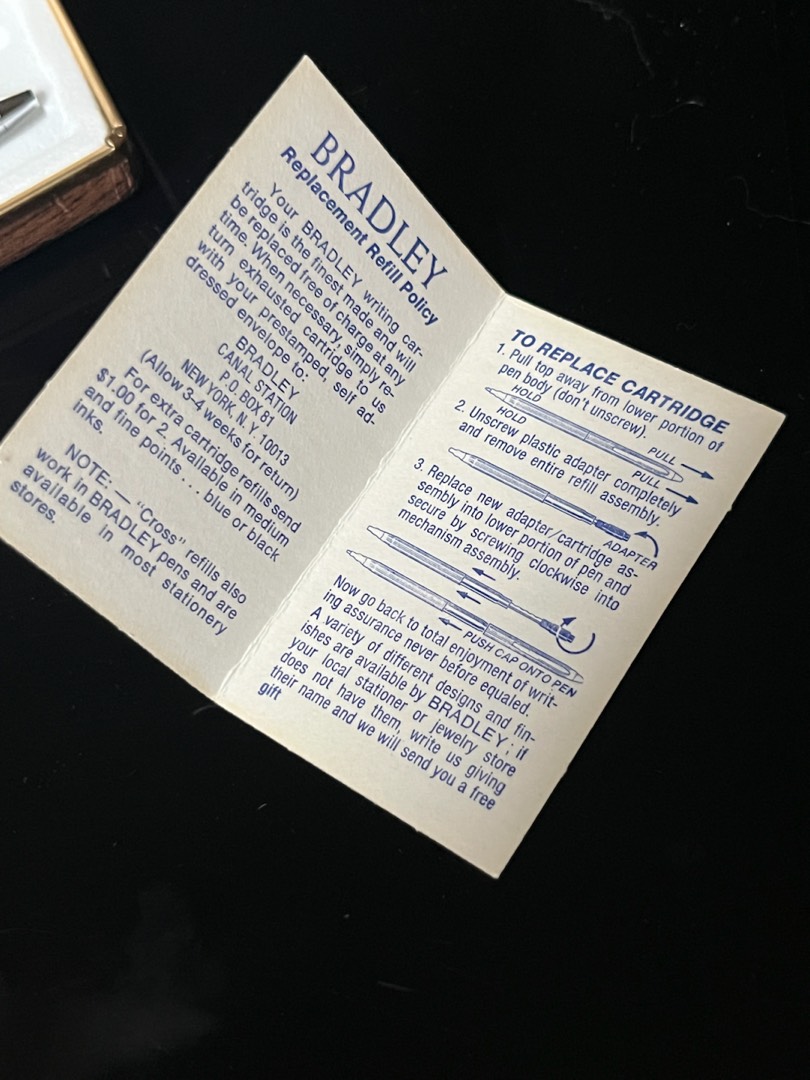 BRADLEY
Replacement Refill Policy
Your BRADLEY writing car-
tridge is the finest made and will
be replaced free of charge at any
time. When necessary, simply re-
turn exhausted cartridge to us
with your prestamped, self ad-
dressed envelope to:
BRADLEY
CANAL STATION
P.O. BOX 81
NEW YORK, N.Y. 10013
(Allow 3-4 weeks for return)
For extra cartridge refills send
$1.00 for 2. Available in medium
and fine points . . . blue or black
inks.
NOTE: — "Cross" refills also
work in BRADLEY pens and are
available in most stationery
stores.
TO REPLACE CARTRIDGE
1. Pull top away from lower portion of
pen body (don't unscrew).
HOLD
HOLD
PULL
PULL
2. Unscrew plastic adapter completely
and remove entire refill assembly.
ADAPTER
3. Replace new adapter/cartridge as-
sembly into lower portion of pen and
secure by screwing clockwise into
mechanism assembly.
PUSH CAP ONTO PEN
Now go back to total enjoyment of writ-
ing assurance never before equaled.
A variety of different designs and fin-
ishes are available by BRADLEY; if
your local stationer or jewelry store
does not have them, write us giving
their name and we will send you a free
gift